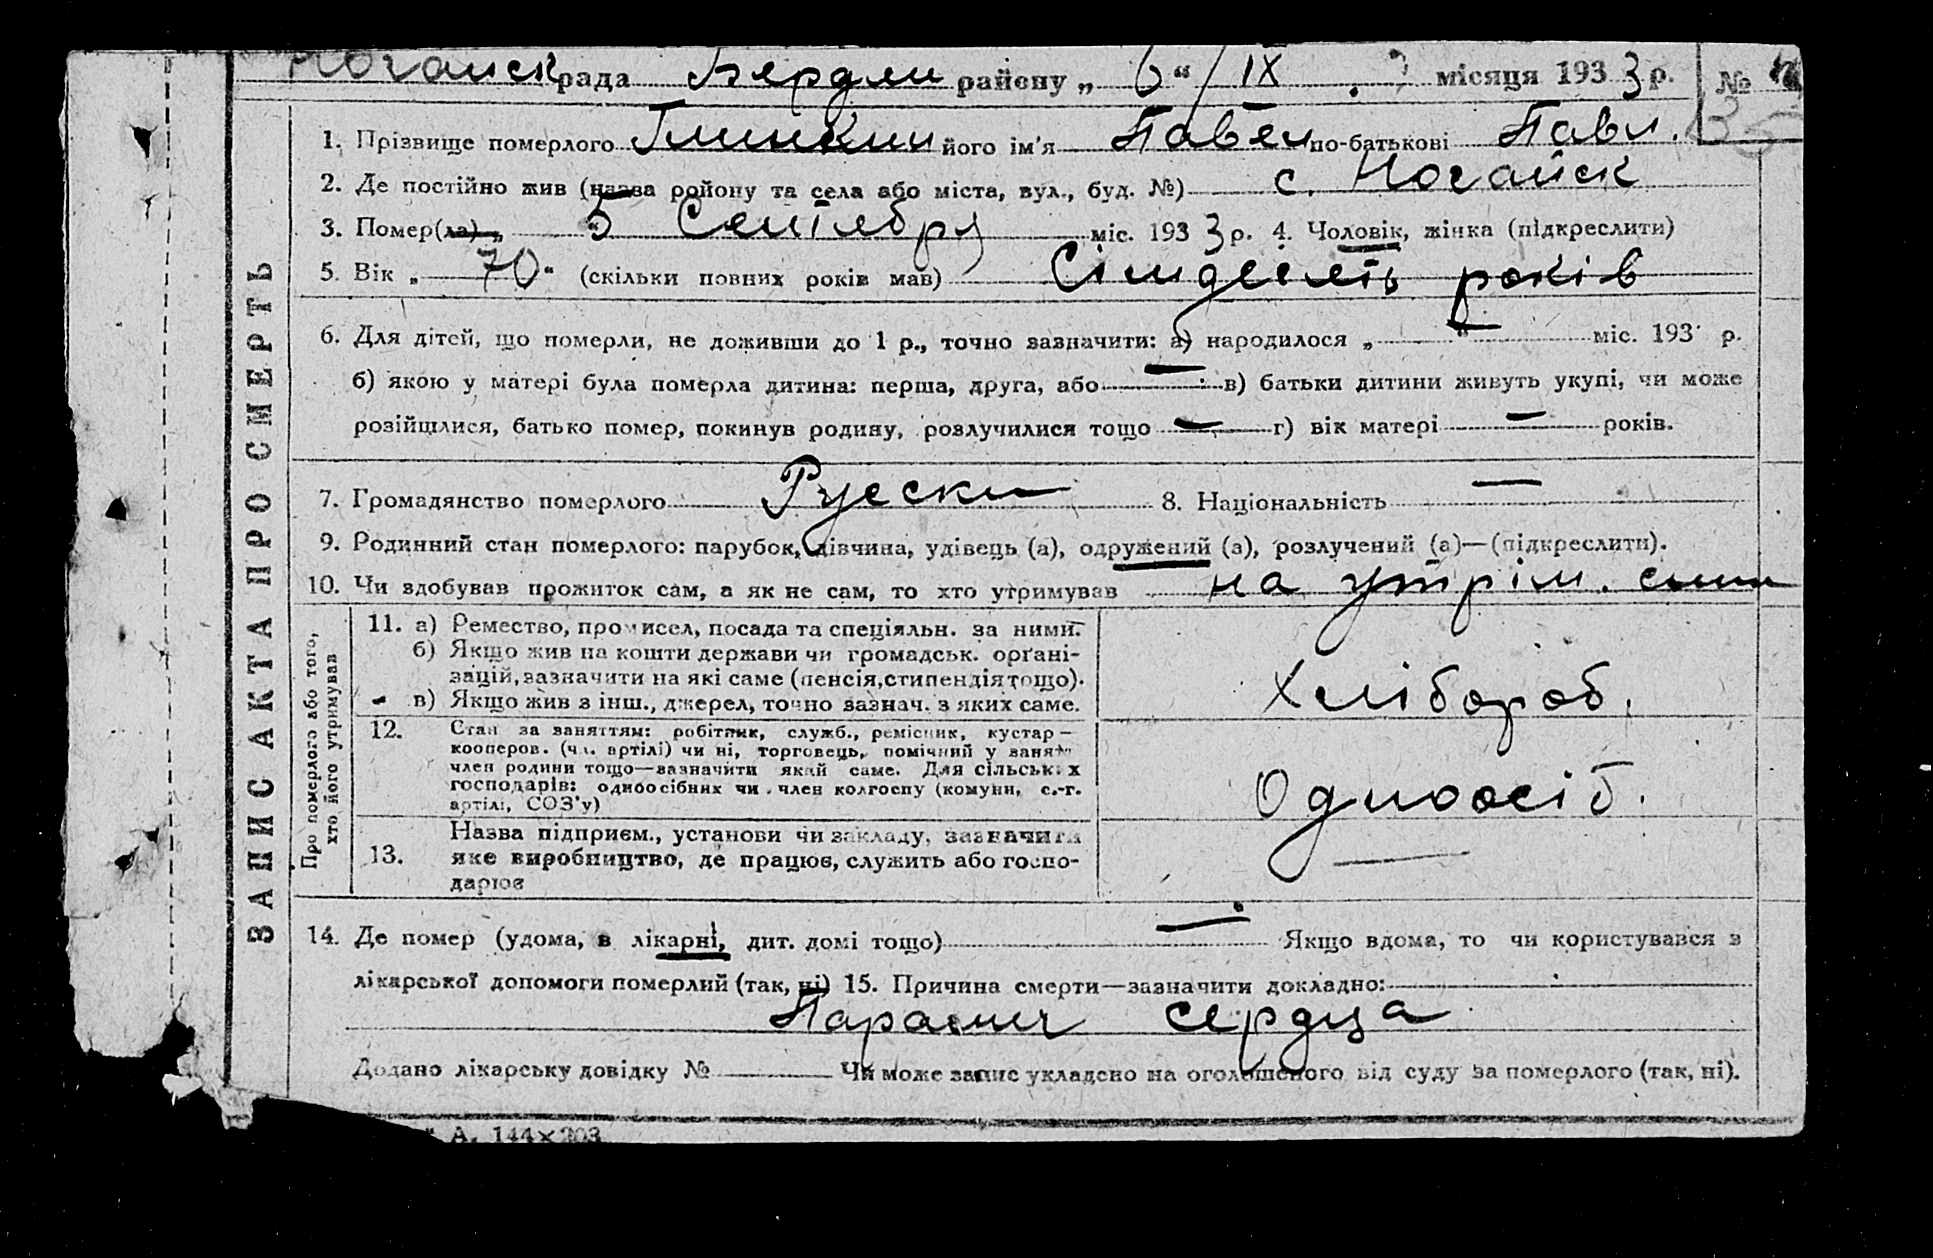 Ногайск рада Бердян району „ 6 “ / IX місяця 193 3 р. №
ЗАПИС АКТА ПРО СМЕРТЬ
1. Прізвище померлого його ім'я Павел по-батькові Павл.
2. Де постійно жив (назва району та села або міста, вул., буд. №) с. Ногайск
3. Помер(ла) „ 5 Сентября міс. 193 3 р. 4. Чоловік, жінка (підкреслити)
5. Вік „ 70 “ (скільки повних років мав) Сімдесять років
6. Для дітей, що померли, не доживши до 1 р., точно зазначити: а) народилося „ — “ міс. 193 р.
б) якою у матері була померла дитина: перша, друга, або — в) батьки дитини живуть укупі, чи може
розійшлися, батько помер, покинув родину, розлучилися тощо — г) вік матері — років.
7. Громадянство померлого Русски 8. Національність —
9. Родинний стан померлого: парубок, дівчина, удівець (а), одружений (а), розлучений (а)—(підкреслити).
10. Чи здобував прожиток сам, а як не сам, то хто утримував на утрім. сина
Про померлого або того,
хто його утримував
11. а) Ремество, промисел, посада та спеціяльн. за ними.
б) Якщо жив на кошти держави чи громадськ. орґані-
зацій, зазначити на які саме (пенсія, стипендія тощо).
в) Якщо жив з інш., джерел, точно зазнач. з яких саме.
Хлібороб.
12. Стан за заняттям: робітник, служб., ремісник, кустар—
кооперов. (чл. артілі) чи ні, торговець, помічний у занят.
член родини тощо—зазначити який саме. Для сільських
господарів: одноосібник чи член колгоспу (комуни, с.-г.
артілі, СОЗ'у)
Одноосіб.
13. Назва підприєм., установи чи закладу, зазначити
яке виробництво, де працює, служить або госпо-
дарює
—
14. Де помер (удома, в лікарні, дит. домі тощо) — Якщо вдома, то чи користувався з
лікарської допомоги померлий (так, ні) 15. Причина смерти—зазначити докладно:
Паралич сердца
Додано лікарську довідку № Чи може запис укладено на оголошеного від суду за померлого (так, ні).
А. 144×203